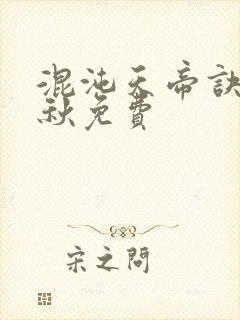 混沌天帝訣
秋免費
宋之問